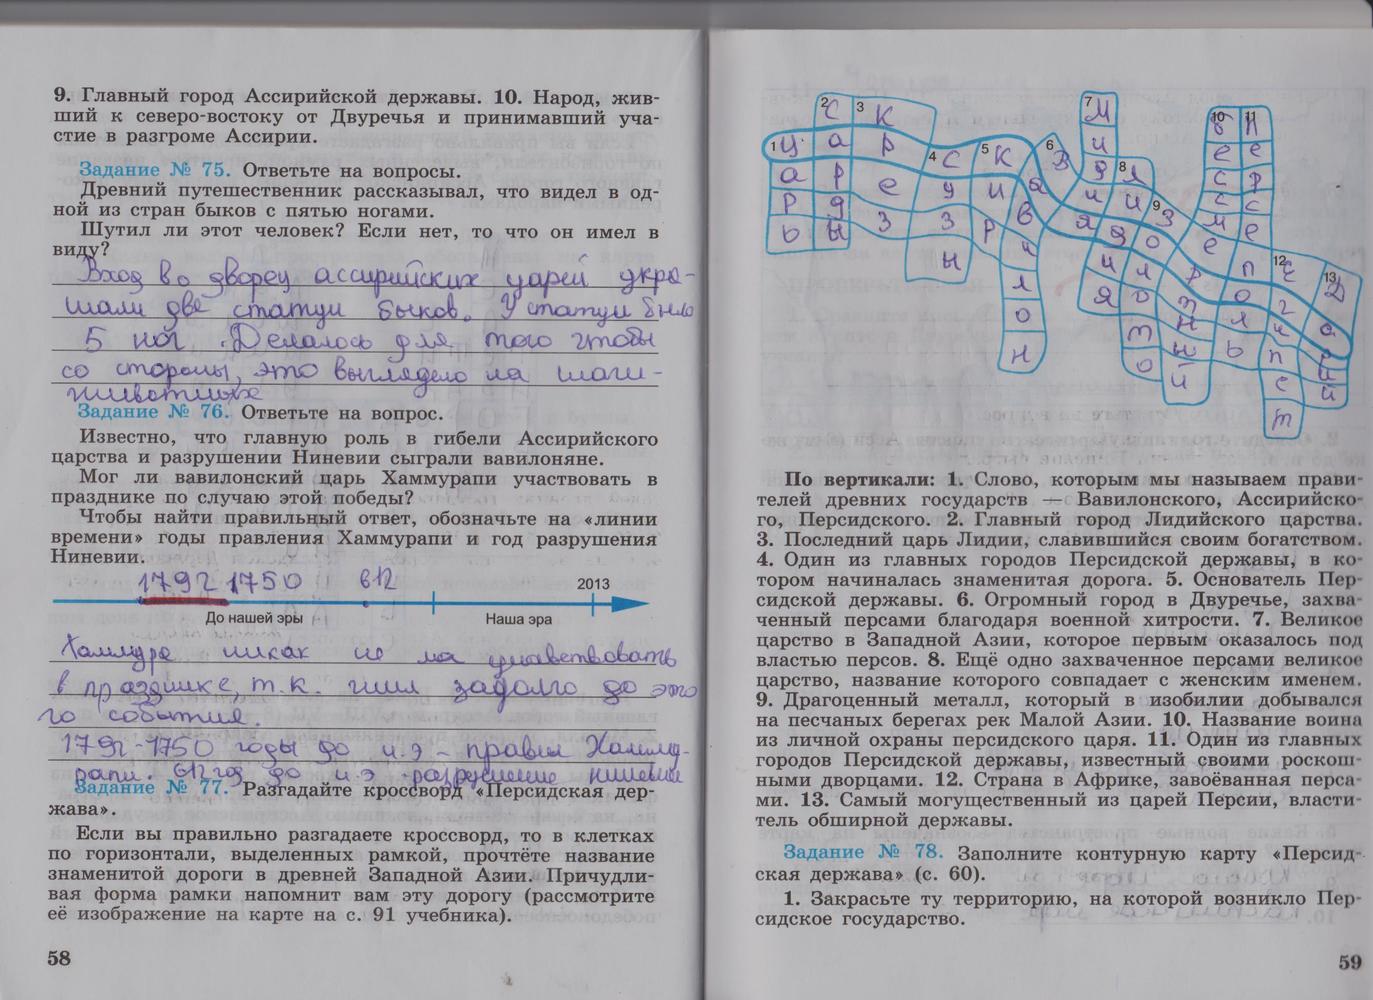 9. Главный город Ассирийской державы. 10. Народ, жив-
ший к северо-востоку от Двуречья и принимавший уча-
стие в разгроме Ассирии.
Задание № 75. Ответьте на вопросы.
Древний путешественник рассказывал, что видел в од-
ной из стран быков с пятью ногами.
Шутил ли этот человек? Если нет, то что он имел в
виду?
Вход во дворец ассирийских царей укра-
шали две статуи быков. У статуи было
5 ног. Делалось для того чтобы
со стороны, это выглядело на шаги-
Задание № 76. Ответьте на вопрос.
Известно, что главную роль в гибели Ассирийского
царства и разрушении Ниневии сыграли вавилоняне.
Мог ли вавилонский царь Хаммурапи участвовать в
празднике по случаю этой победы?
Чтобы найти правильный ответ, обозначьте на «линии
времени» годы правления Хаммурапи и год разрушения
Ниневии.
1792 1750 612
2013
До нашей эры Наша эра
никак не
в празднике, т.к. жил задолго до это
го события.
1792-1750 годы до н.э - правил Хамму-
рапи. 612 год до н.э разрушение ниневии
Задание № 77. Разгадайте кроссворд «Персидская дер-
жава».
Если вы правильно разгадаете кроссворд, то в клетках
по горизонтали, выделенных рамкой, прочтёте название
знаменитой дороги в древней Западной Азии. Причудли-
вая форма рамки напомнит вам эту дорогу (рассмотрите
её изображение на карте на с. 91 учебника).
58
1 Царь
2 Сарды
3 Крез
4 Сузы
5 Кир
6 Вавилон
7 Мидия
8 Лидия
9 Золото
10 Бессмертный
11 Персеполь
12 Египет
13 Дарий
По вертикали: 1. Слово, которым мы называем прави-
телей древних государств — Вавилонского, Ассирийско-
го, Персидского. 2. Главный город Лидийского царства.
3. Последний царь Лидии, славившийся своим богатством.
4. Один из главных городов Персидской державы, в ко-
тором начиналась знаменитая дорога. 5. Основатель Пер-
сидской державы. 6. Огромный город в Двуречье, захва-
ченный персами благодаря военной хитрости. 7. Великое
царство в Западной Азии, которое первым оказалось под
властью персов. 8. Ещё одно захваченное персами великое
царство, название которого совпадает с женским именем.
9. Драгоценный металл, который в изобилии добывался
на песчаных берегах рек Малой Азии. 10. Название воина
из личной охраны персидского царя. 11. Один из главных
городов Персидской державы, известный своими роскош-
ными дворцами. 12. Страна в Африке, завоёванная перса-
ми. 13. Самый могущественный из царей Персии, власти-
тель обширной державы.
Задание № 78. Заполните контурную карту «Персид-
ская держава» (с. 60).
1. Закрасьте ту территорию, на которой возникло Пер-
сидское государство.
59